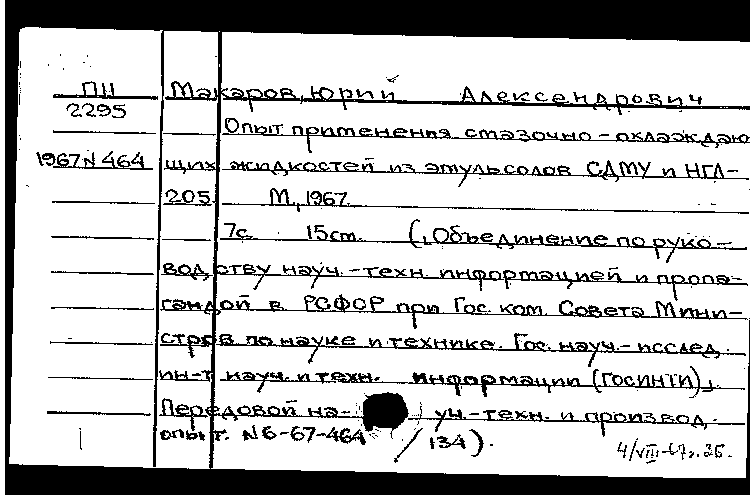 ПН Макаров, Юрий Александрович
2295
Опыт применения смазочно-охлаждаю
1967 N 464 щих жидкостей из эмульсолов СДМУ и НГЛ-
205 М., 1967
7с. 15см. („Объединение по руко-
водству науч.-техн. информацией и пропа-
гандой в РСФСР при Гос. ком. Совета Мини-
стров по науке и технике. Гос. науч.-исслед.
ин-т науч. и техн. информации (ГОСИНТИ)„
Передовой на- уч.-техн. и производ.
опыт. N 6-67-464 / 134).
4/VIII-67г.